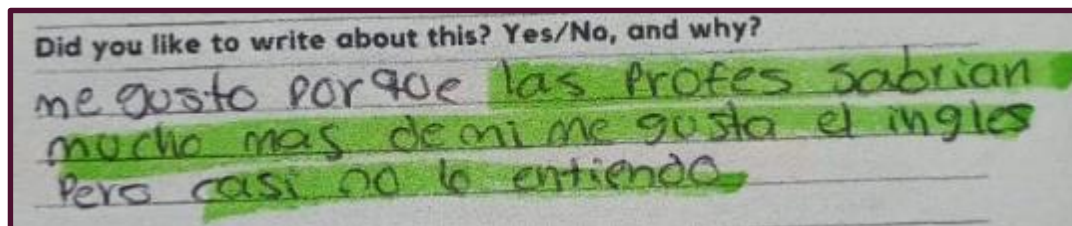 Did you like to write about this? Yes/No, and why?
me gusto porque las profes sabrian
mucho mas de mi me gusta el ingles
Pero casi no lo entiendo